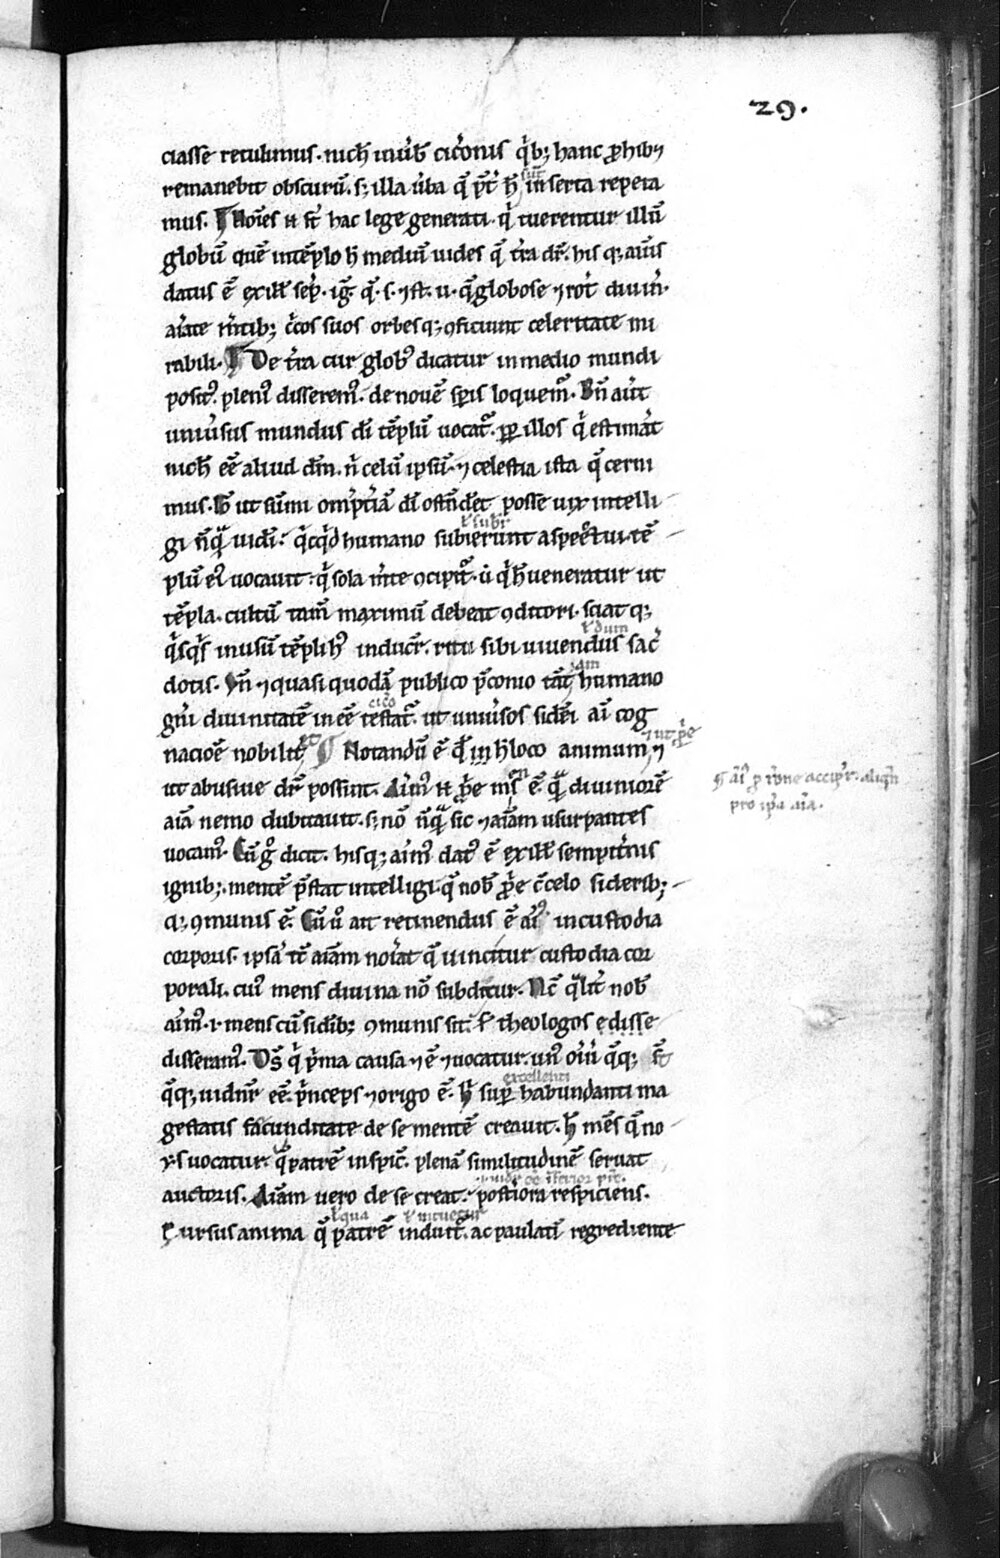 29.
ciasse retulimus. nich̄ inũb̃ cic̃onis q̇b; hanc p̱hibu
remanebit obscurũ. s; illa ũba q̃ p̃t̃ h̃ inserta repeta
mus. ¶ Hoĩes .n. st̃ hac lege generati. q̇ tuerentur illũ
globũ quẽ intẽplo h̃ mediũ uides q̃ t̃ra dr̃. his q; aiũs
datus ẽ exill̃ sẽp. ig̃. q̃. s. ⁊ st̃. u. q̃ globose ⁊ rot̃ diuin.
aĩate m̃tib; c̃cos suos orbesq; ꝯficiunt celeritate mi
rabili. ¶ De t̃ra cur glob⁹ dicatur inmedio mundi
posit⁹. plen⁹ disserem⁹. de nouẽ sp̃is loquem̃. Bñ aũt
uniũsus mundus dĩ tẽplũ uocat̃. p̱p illos q̇ estimãt
nich̄ eẽ aliud dm̃. ñ celũ ip̃sũ. ⁊ celestia ista q̃ cerni
mus. h̃ ut sũmi omp̃tiã dĩ ostñdẽt posse uix intelli
gi ñq̃ uidĩ: q̇cq̇d humano subierunt aspectui. tẽ
plũ ei⁹ uocauit: q̇ sola m̃te ꝯcipit̃. ũ q̇ h̃ ueneratur ut
tẽpla. cultũ tam̃ maximũ debeat ꝯditori. sciat q;
q̇sq̇s inusũ tẽpli h⁹ inducr̃. ritu sibi uiuendus sac̃
dotis. Vñ ⁊ quasi quodã publico p̃conio tãt̃ humano
gñi diuinitatẽ ineẽ testat̃. ut uniũsos sidẽi aĩ cog
nacioẽ nobilit̃ ¶ Notandũ ẽ q̃ in h̃ loco animum ⁊
ut abusiue dr̃ possunt. Aĩm⁹ .n. p̱p̃e m̃s ẽ. q̃ diuiniorẽ
aĩã nemo dubitauit. s; nõ ñq̃ sic ⁊ aĩam usurpantes
uocam⁹. Cũ g̊ dicit. hisq; aĩm⁹ dat⁹ ẽ exill̃ sempit̃nis
ignib;. mentẽ p̃stat intelligi. q̃ nob̃ p̱p̃e c̃celo siderib;
q; ꝯmunis ẽ. Cũ ũ ait retinendus ẽ aĩ⁹ incustodia
corporis. ipsã tc̃ aĩam noĩat q̃ uincitur custodia cor
porali. cui⁹ mens diuina nõ subditur. Nc̃ q̃lit̃ nob̃
aĩm⁹. i. mens cũ sidĩb; ꝯmunis sit. theologos edisse
disseram⁹. Ds̃ q̇ p̃ma causa ⁊ ẽ ⁊ uocatur. un⁹ oĩũ q̃q; st̃
q̃q; uidñr eẽ. p̃nceps ⁊ origo ẽ. h̃ sup̱ habundanti ma
gestatis facunditate de se mentẽ creauit. h̃ mẽs q̃ no
ys uocatur. q̃ patrẽ inspic̃. plenã similitudinẽ seruat
auctoris. Aĩam uero de se creat. post̃iora respiciens.
Rursus anima q̃ patrẽ induit̃. ac paulatĩ regrediente
¶ aĩ⁹ p̱ rõne accip̃r. aliqñ
pro ip̃a aĩa.